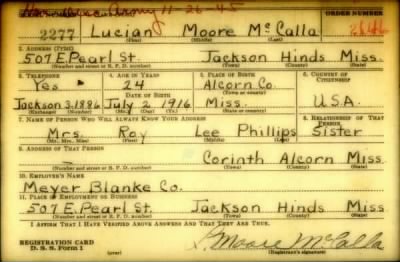 Hon. Disc. Army 11-26-45
ORDER NUMBER
2277 Lucian Moore McCalla
(First) (Middle) (Last)
2. ADDRESS (Print)
507 E. Pearl St. Jackson Hinds Miss.
(Number and street or R. F. D. number) (Town) (County) (State)
3. TELEPHONE 4. AGE IN YEARS 5. PLACE OF BIRTH 6. COUNTRY OF CITIZENSHIP
Yes 24 Alcorn Co.
DATE OF BIRTH (Town or county)
Jackson 3.1886 July 2 1916 Miss. U.S.A.
(Exchange) (Number) (Mo.) (Day) (Yr.) (State or country)
7. NAME OF PERSON WHO WILL ALWAYS KNOW YOUR ADDRESS 8. RELATIONSHIP OF THAT PERSON
Mrs. Roy Lee Phillips Sister
(Mr., Mrs., Miss) (First) (Middle) (Last)
9. ADDRESS OF THAT PERSON
— Corinth Alcorn Miss
(Number and street or R. F. D. number) (Town) (County) (State)
10. EMPLOYER'S NAME
Meyer Blanke Co.
11. PLACE OF EMPLOYMENT OR BUSINESS
507 E. Pearl St. Jackson Hinds Miss
(Number and street or R. F. D. number) (Town) (County) (State)
I AFFIRM THAT I HAVE VERIFIED ABOVE ANSWERS AND THAT THEY ARE TRUE.
REGISTRATION CARD
D. S. S. Form 1
L. Moore McCalla
(Registrant's signature)